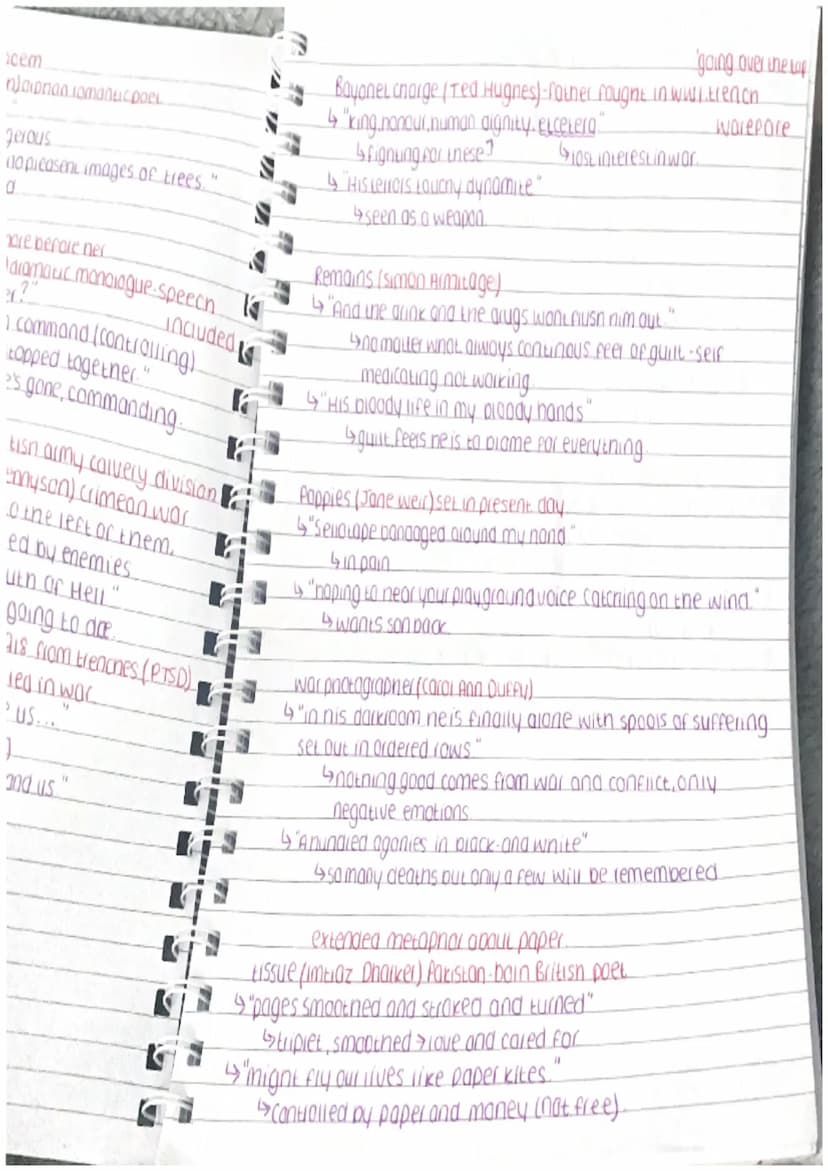 oem
n) orphan romantic poet
gerous
no pleasent images of trees."
d
more before her
dramatic monologue-speech
er?"
included
command (controlling)
topped together"
e's gone, commanding.
tish army calvery division
ennyson) crimean war
o the left of them,
ed by enemies
uth of Hell"
going to die.
918 from trenches (PTSD)
ied in war
us..."
and us"
'going over the top
Bayonet charge (Ted Hughes)-father fought in WW1.trench
warefare
↳"king,honour,human dignity,etcetera"
↳fighting for these? ↳lost interest in war.
↳"His terrors touchy dynamite"
↳seen as a weapon.
Remains (Simon Armitage)
↳"And the drink and the drugs wont flush him out."
↳no matter what always continous feel of guilt-self
medicating not working
↳"His bloody life in my bloody hands"
↳guilt, feels he is to blame for everything
Poppies (Jane weir) set in present day
↳"sellotape bandaged around my hand"
↳in pain
↳"hoping to hear your playground voice catching on the wind."
↳wants son back
war photographer (Carol Ann Duffy)
↳"in his darkroom he is finally alone with spools of suffering
set out in ordered rows"
↳nothing good comes from war and conflict, only
negative emotions
↳"A hundred agonies in black-and white"
↳so many deaths but only a few will be remembered
extended metaphor about paper.
tissue (imtiaz Dharker) Pakistan-born British poet
↳"pages smoothed and stroked and turned"
↳triplet, smoothed → love and cared for
↳"might fly our lives like paper kites."
↳controlled by paper and money (not free)